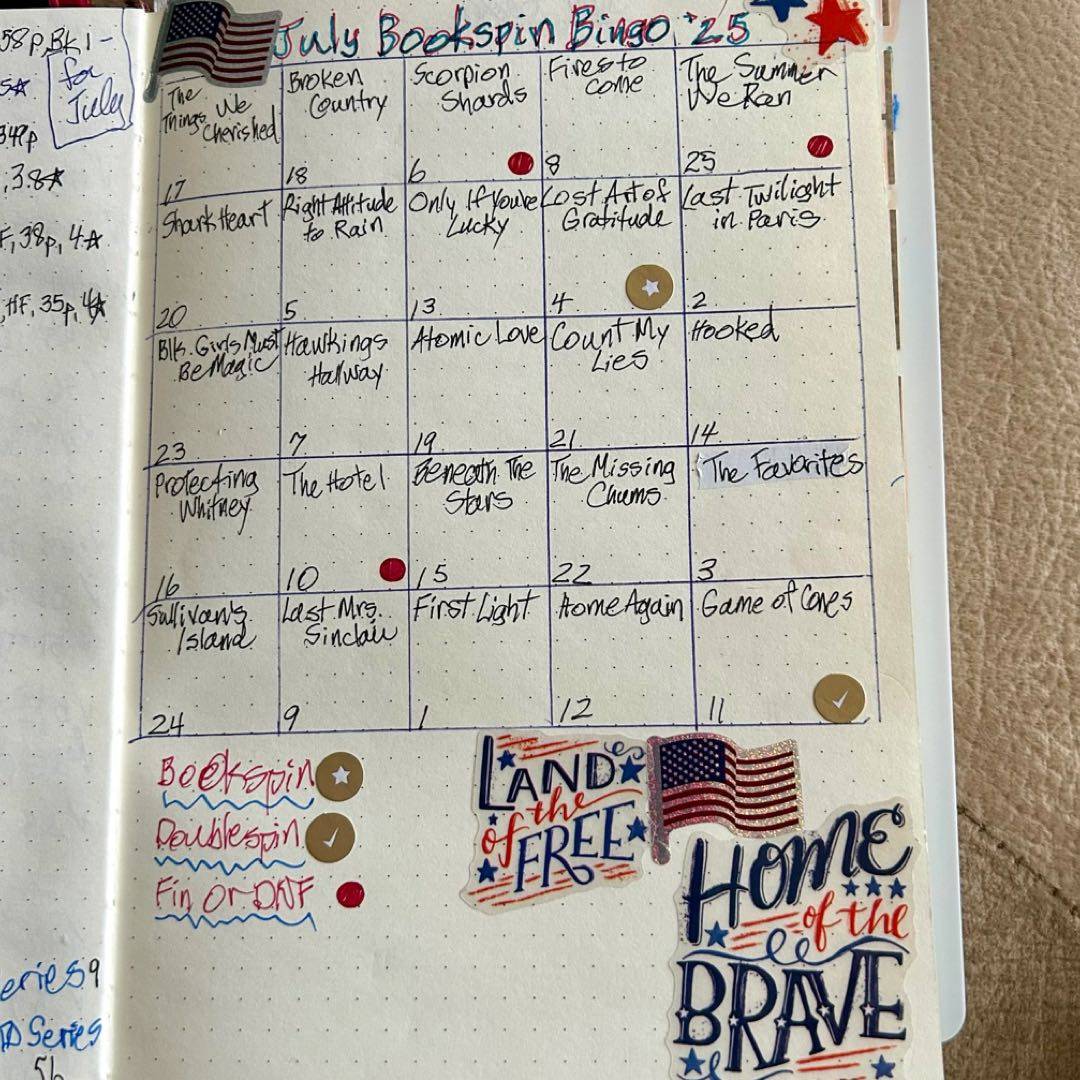 58p, Bk 1-
for
July
5☆
349p
, 3.8☆
F, 38p, 4☆
, HF, 35p, 4☆
eries 9
Series
56
July Bookspin Bingo '25
The
Things We
Cherished
17
Broken
Country
18
Scorpion
Shards
6
Fires to
Come
8
The Summer
We Ran
25
Shark Heart
20
Right Attitude
to Rain
5
Only If You're
Lucky
13
Lost Art of
Gratitude
4
Last Twilight
in Paris
2
Blk. Girls Must
Be Magic
23
Hawkings
Hallway
7
Atomic Love
19
Count My
Lies
21
Hooked
14
Protecting
Whitney
16
The Hotel
10
Beneath The
Stars
15
The Missing
Chums
22
The Favorites
3
Sullivan's
Island
24
Last Mrs.
Sinclair
9
First Light
1
Home Again
12
Game of Cones
11
Bookspin
Doublespin
Fin Or DNF
LAND
of the
FREE
HOME
of the
BRAVE